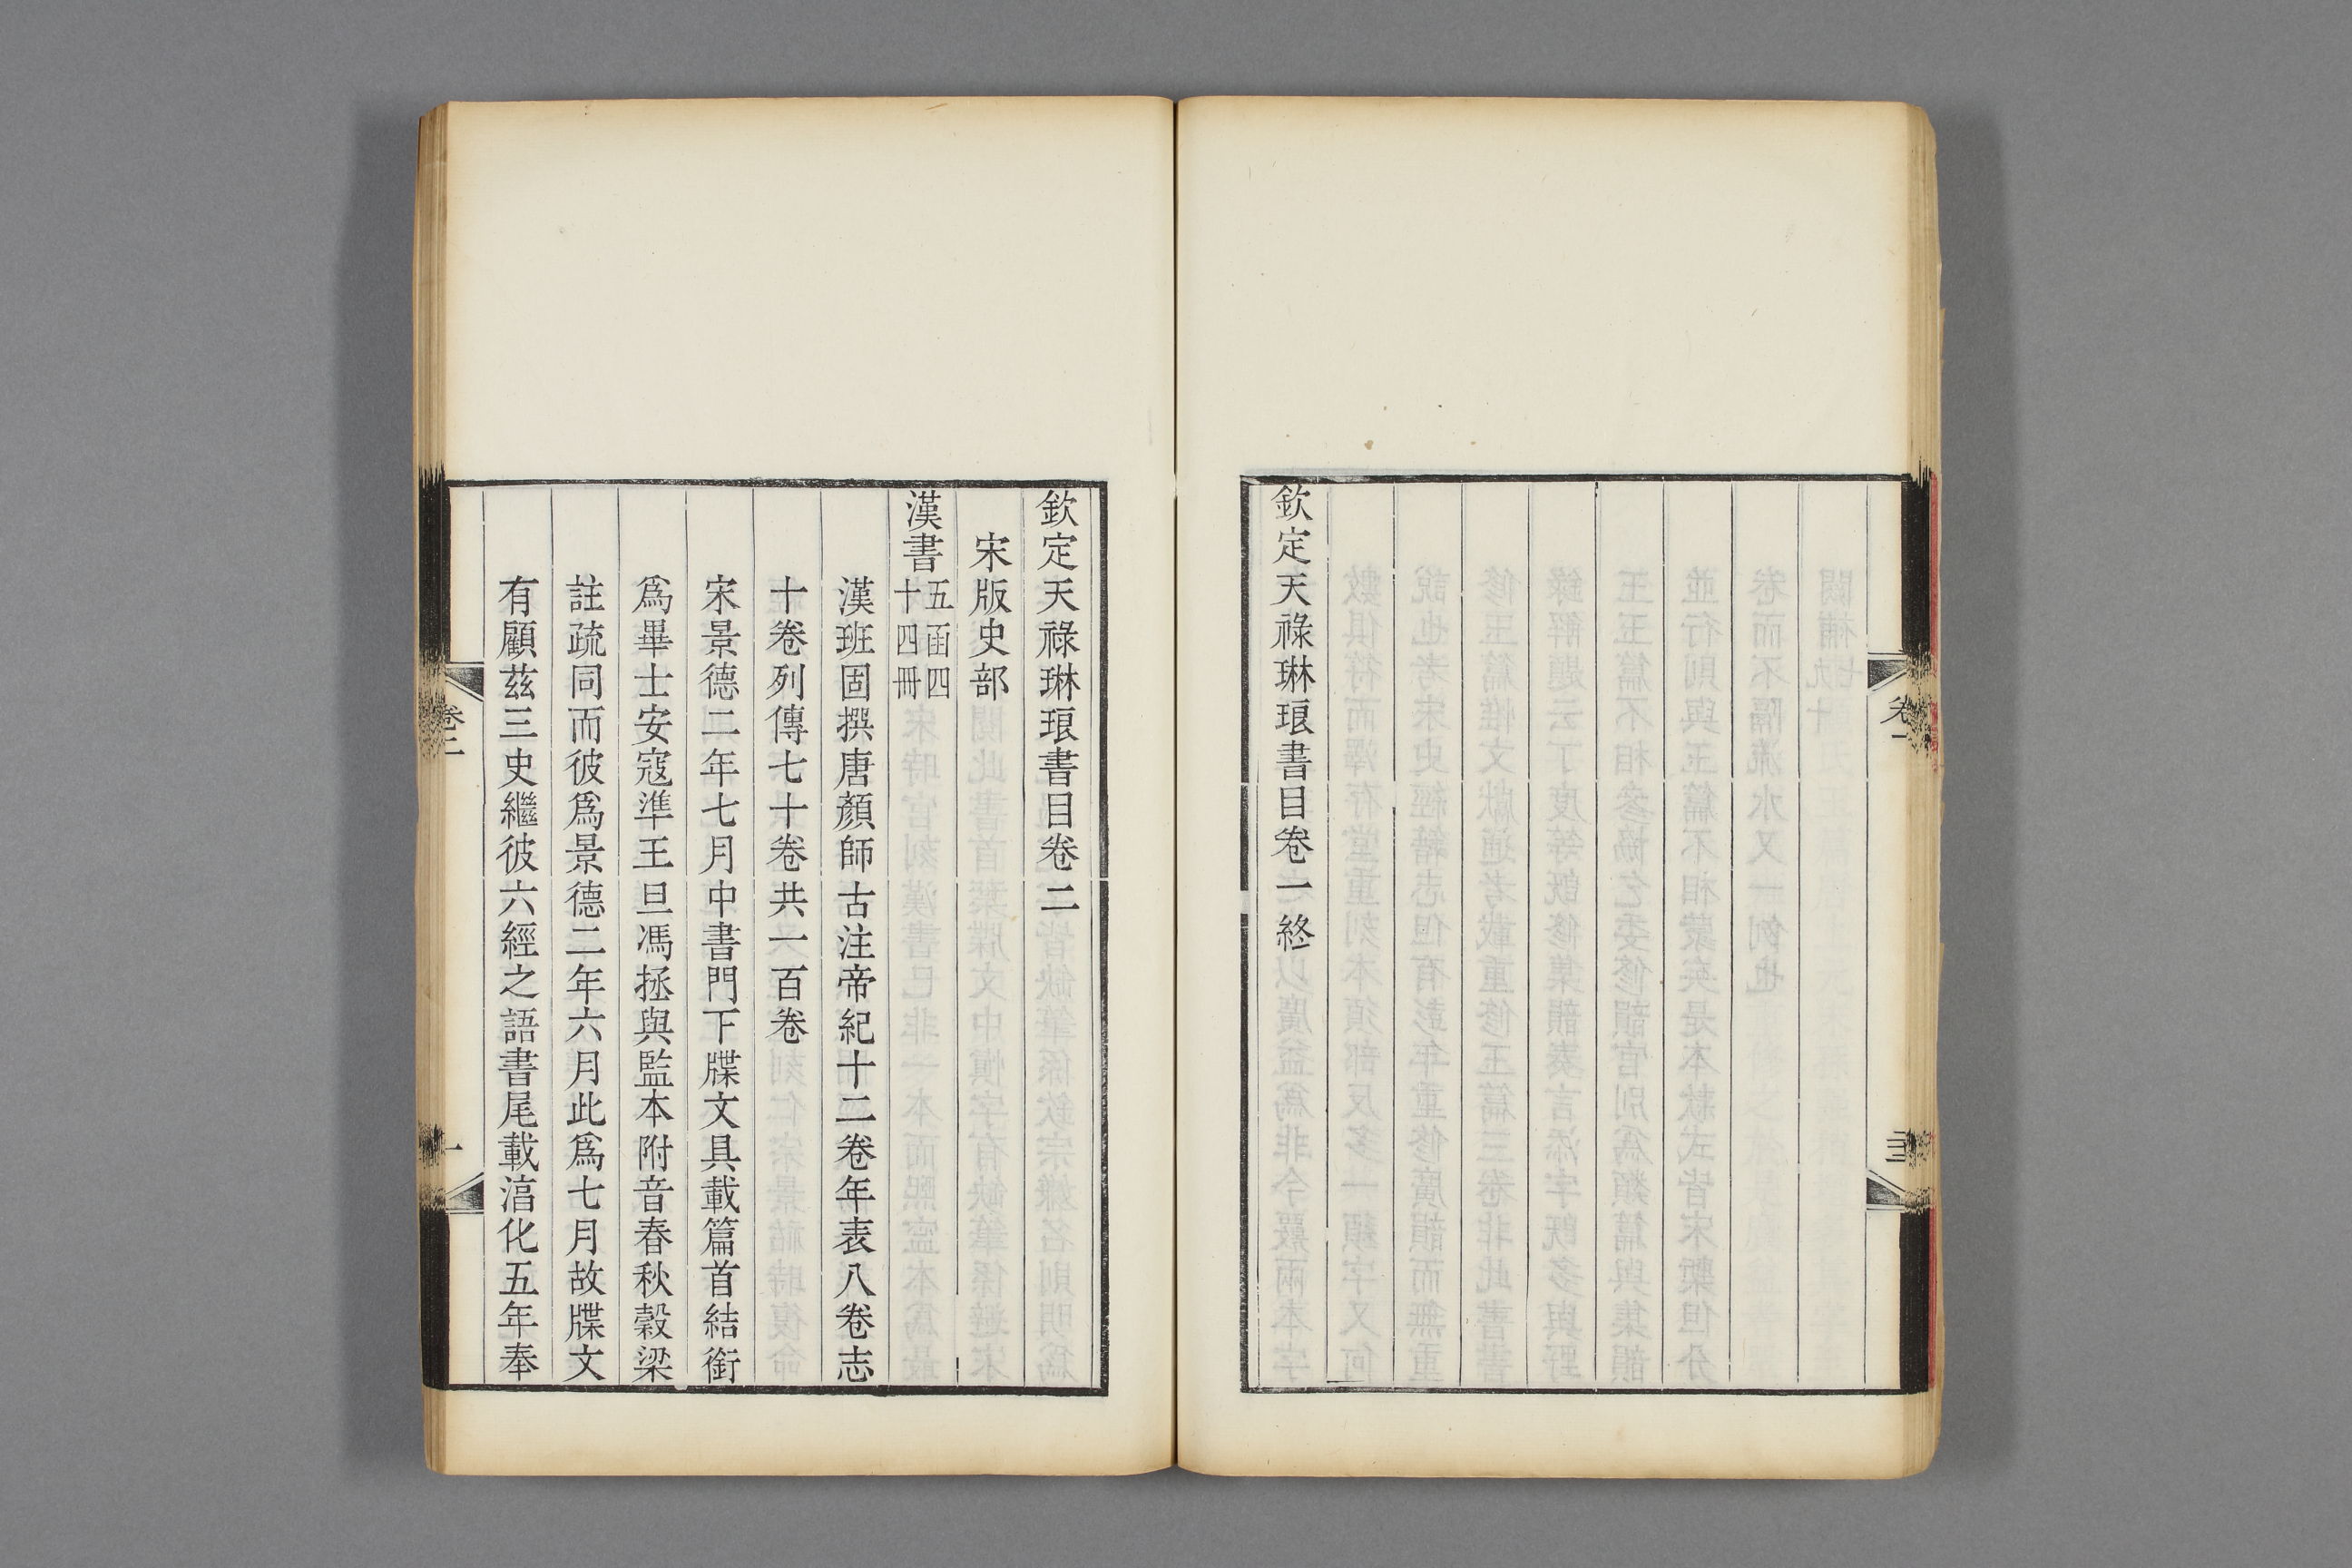 欽定天祿琳琅書目卷一終
卷一
欽定天祿琳琅書目卷二
宋版史部
漢書五函四十四冊
漢班固撰唐顏師古注帝紀十二卷年表八卷志
十卷列傳七十卷共一百卷
宋景德二年七月中書門下牒文具載篇首結銜
爲畢士安寇準王旦馮拯與監本附音春秋穀梁
註疏同而彼爲景德二年六月此爲七月故牒文
有顧茲三史繼彼六經之語書尾載湻化五年奉
卷二
一